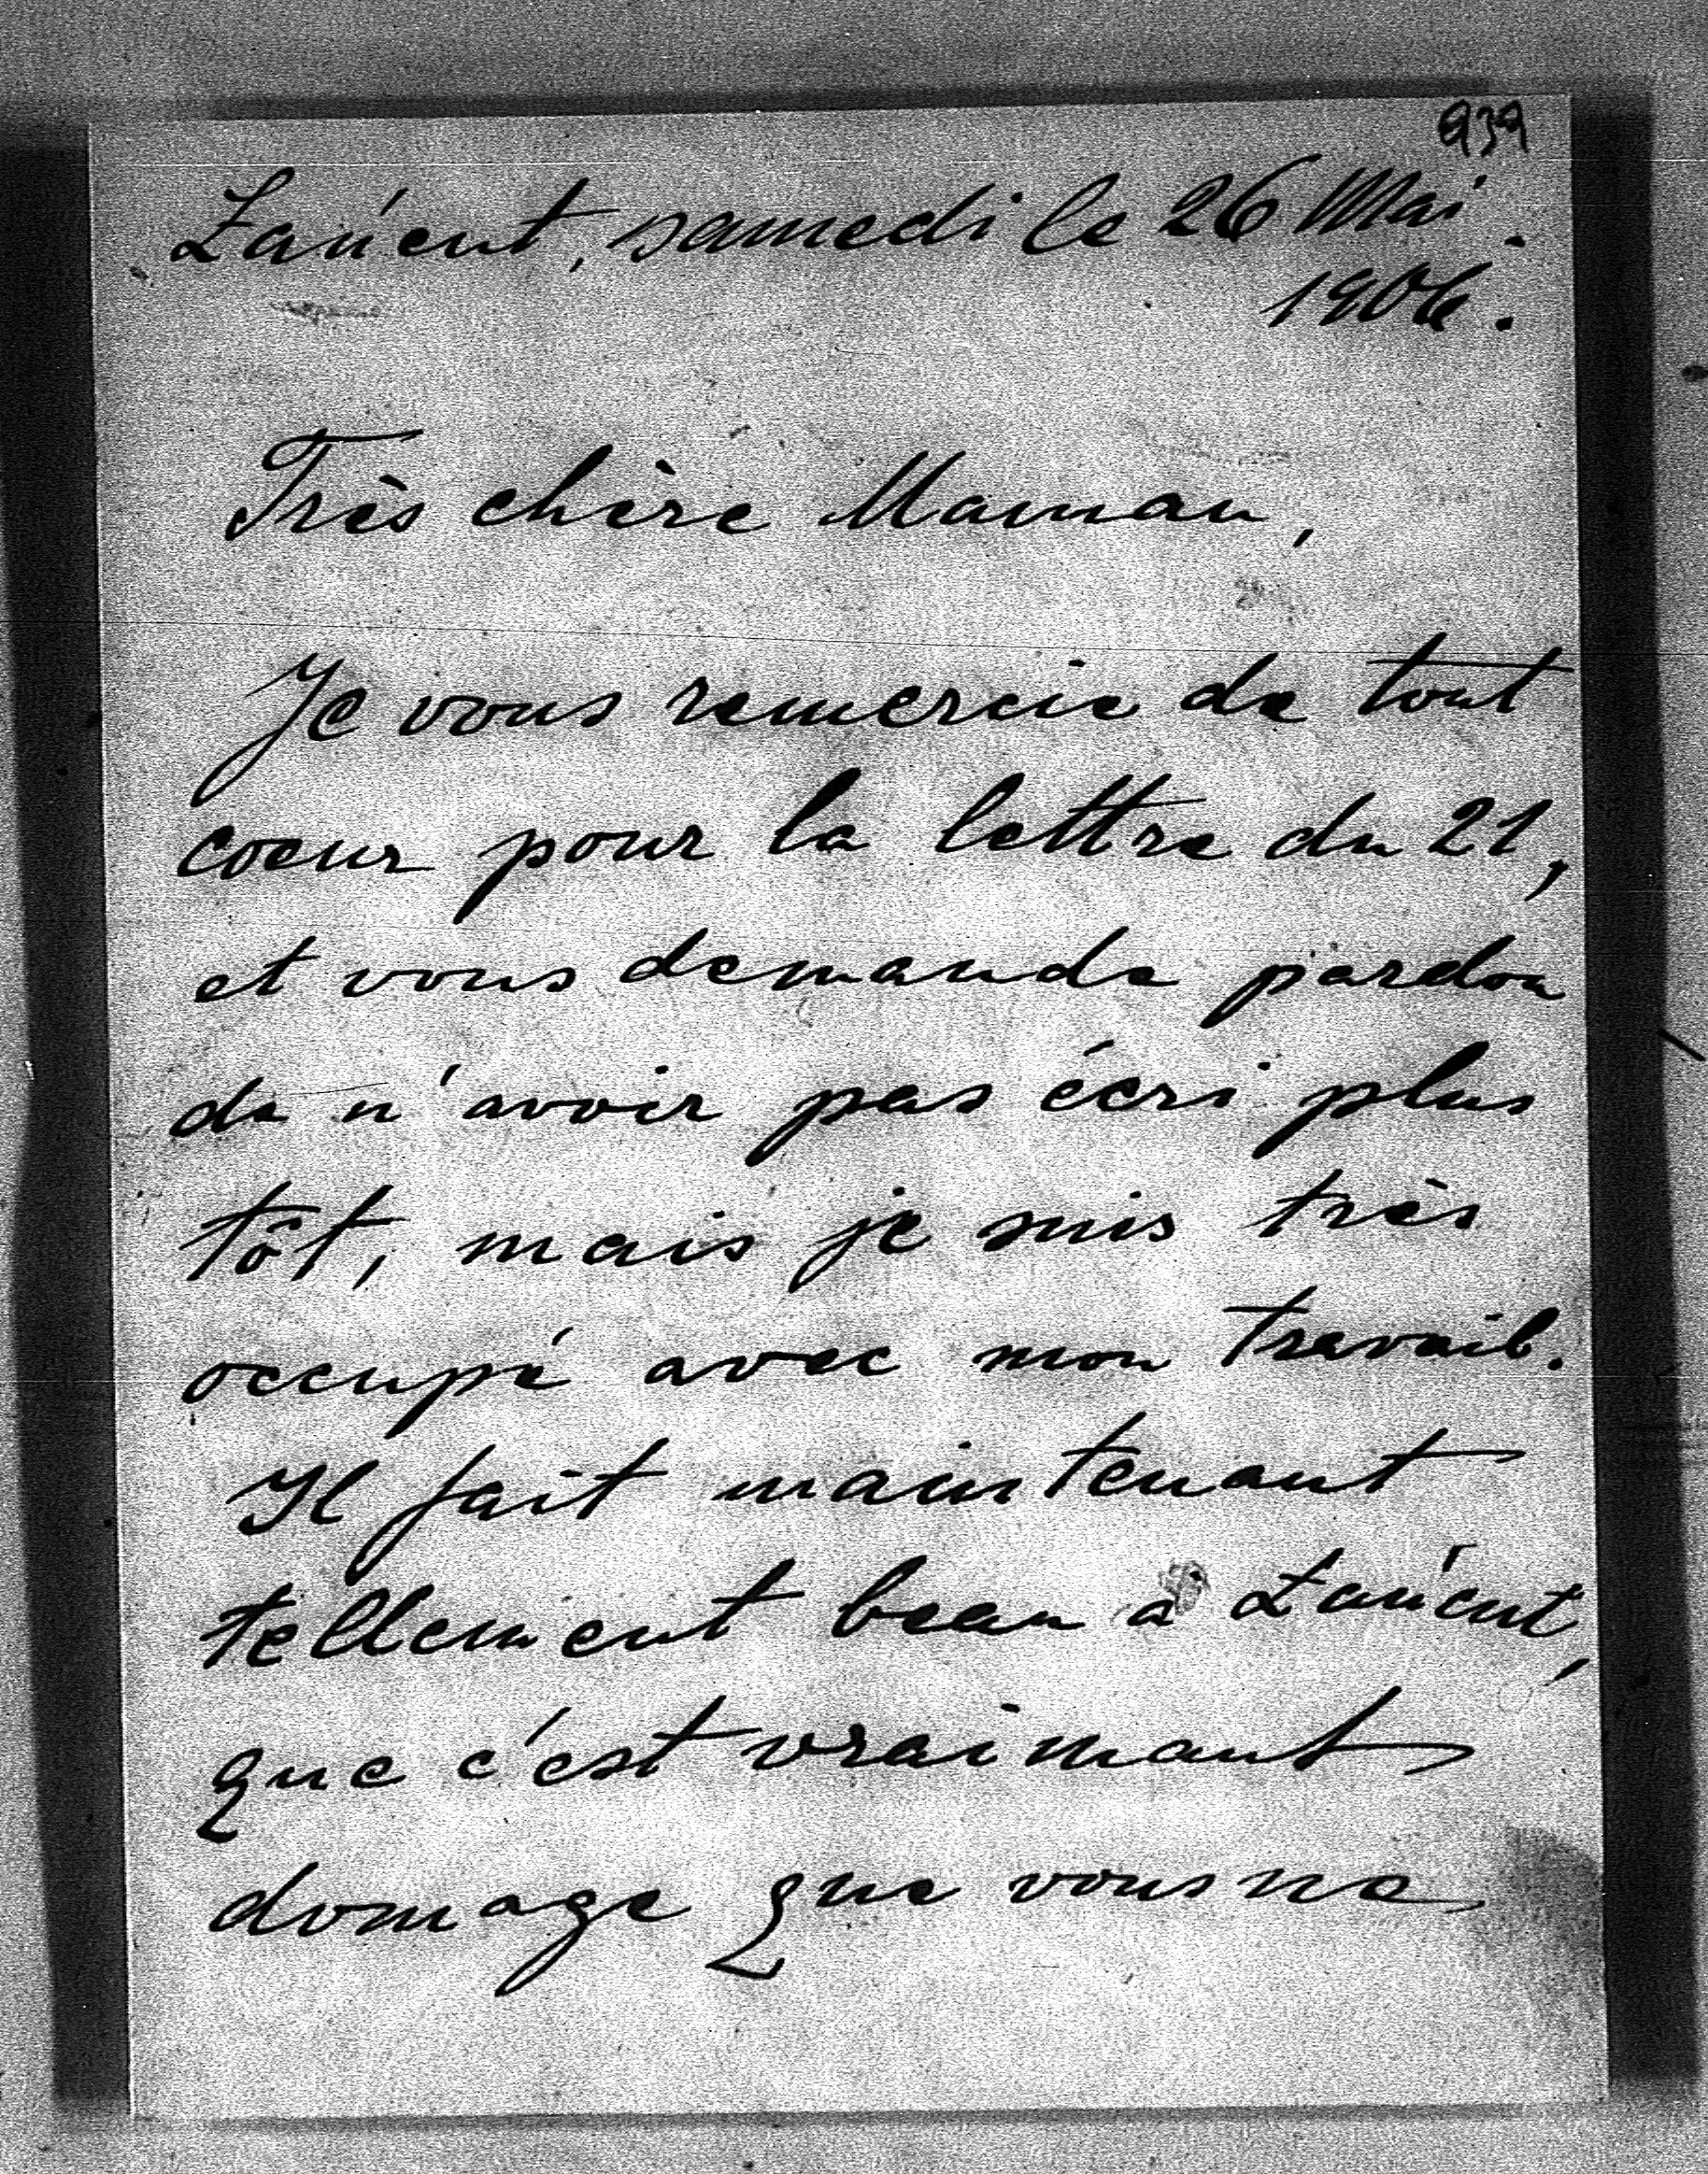 939
Łańcut, samedi le 26 Mai.
1906.
Très chère Maman,
Je vous remercie de tout
coeur pour la lettre du 21,
et vous demande pardon
de n'avoir pas écri plus
tôt, mais je suis très
occupé avec mon travail.
Il fait maintenant
tellement beau à Łańcut,
que c'est vraimant
domage que vous ne